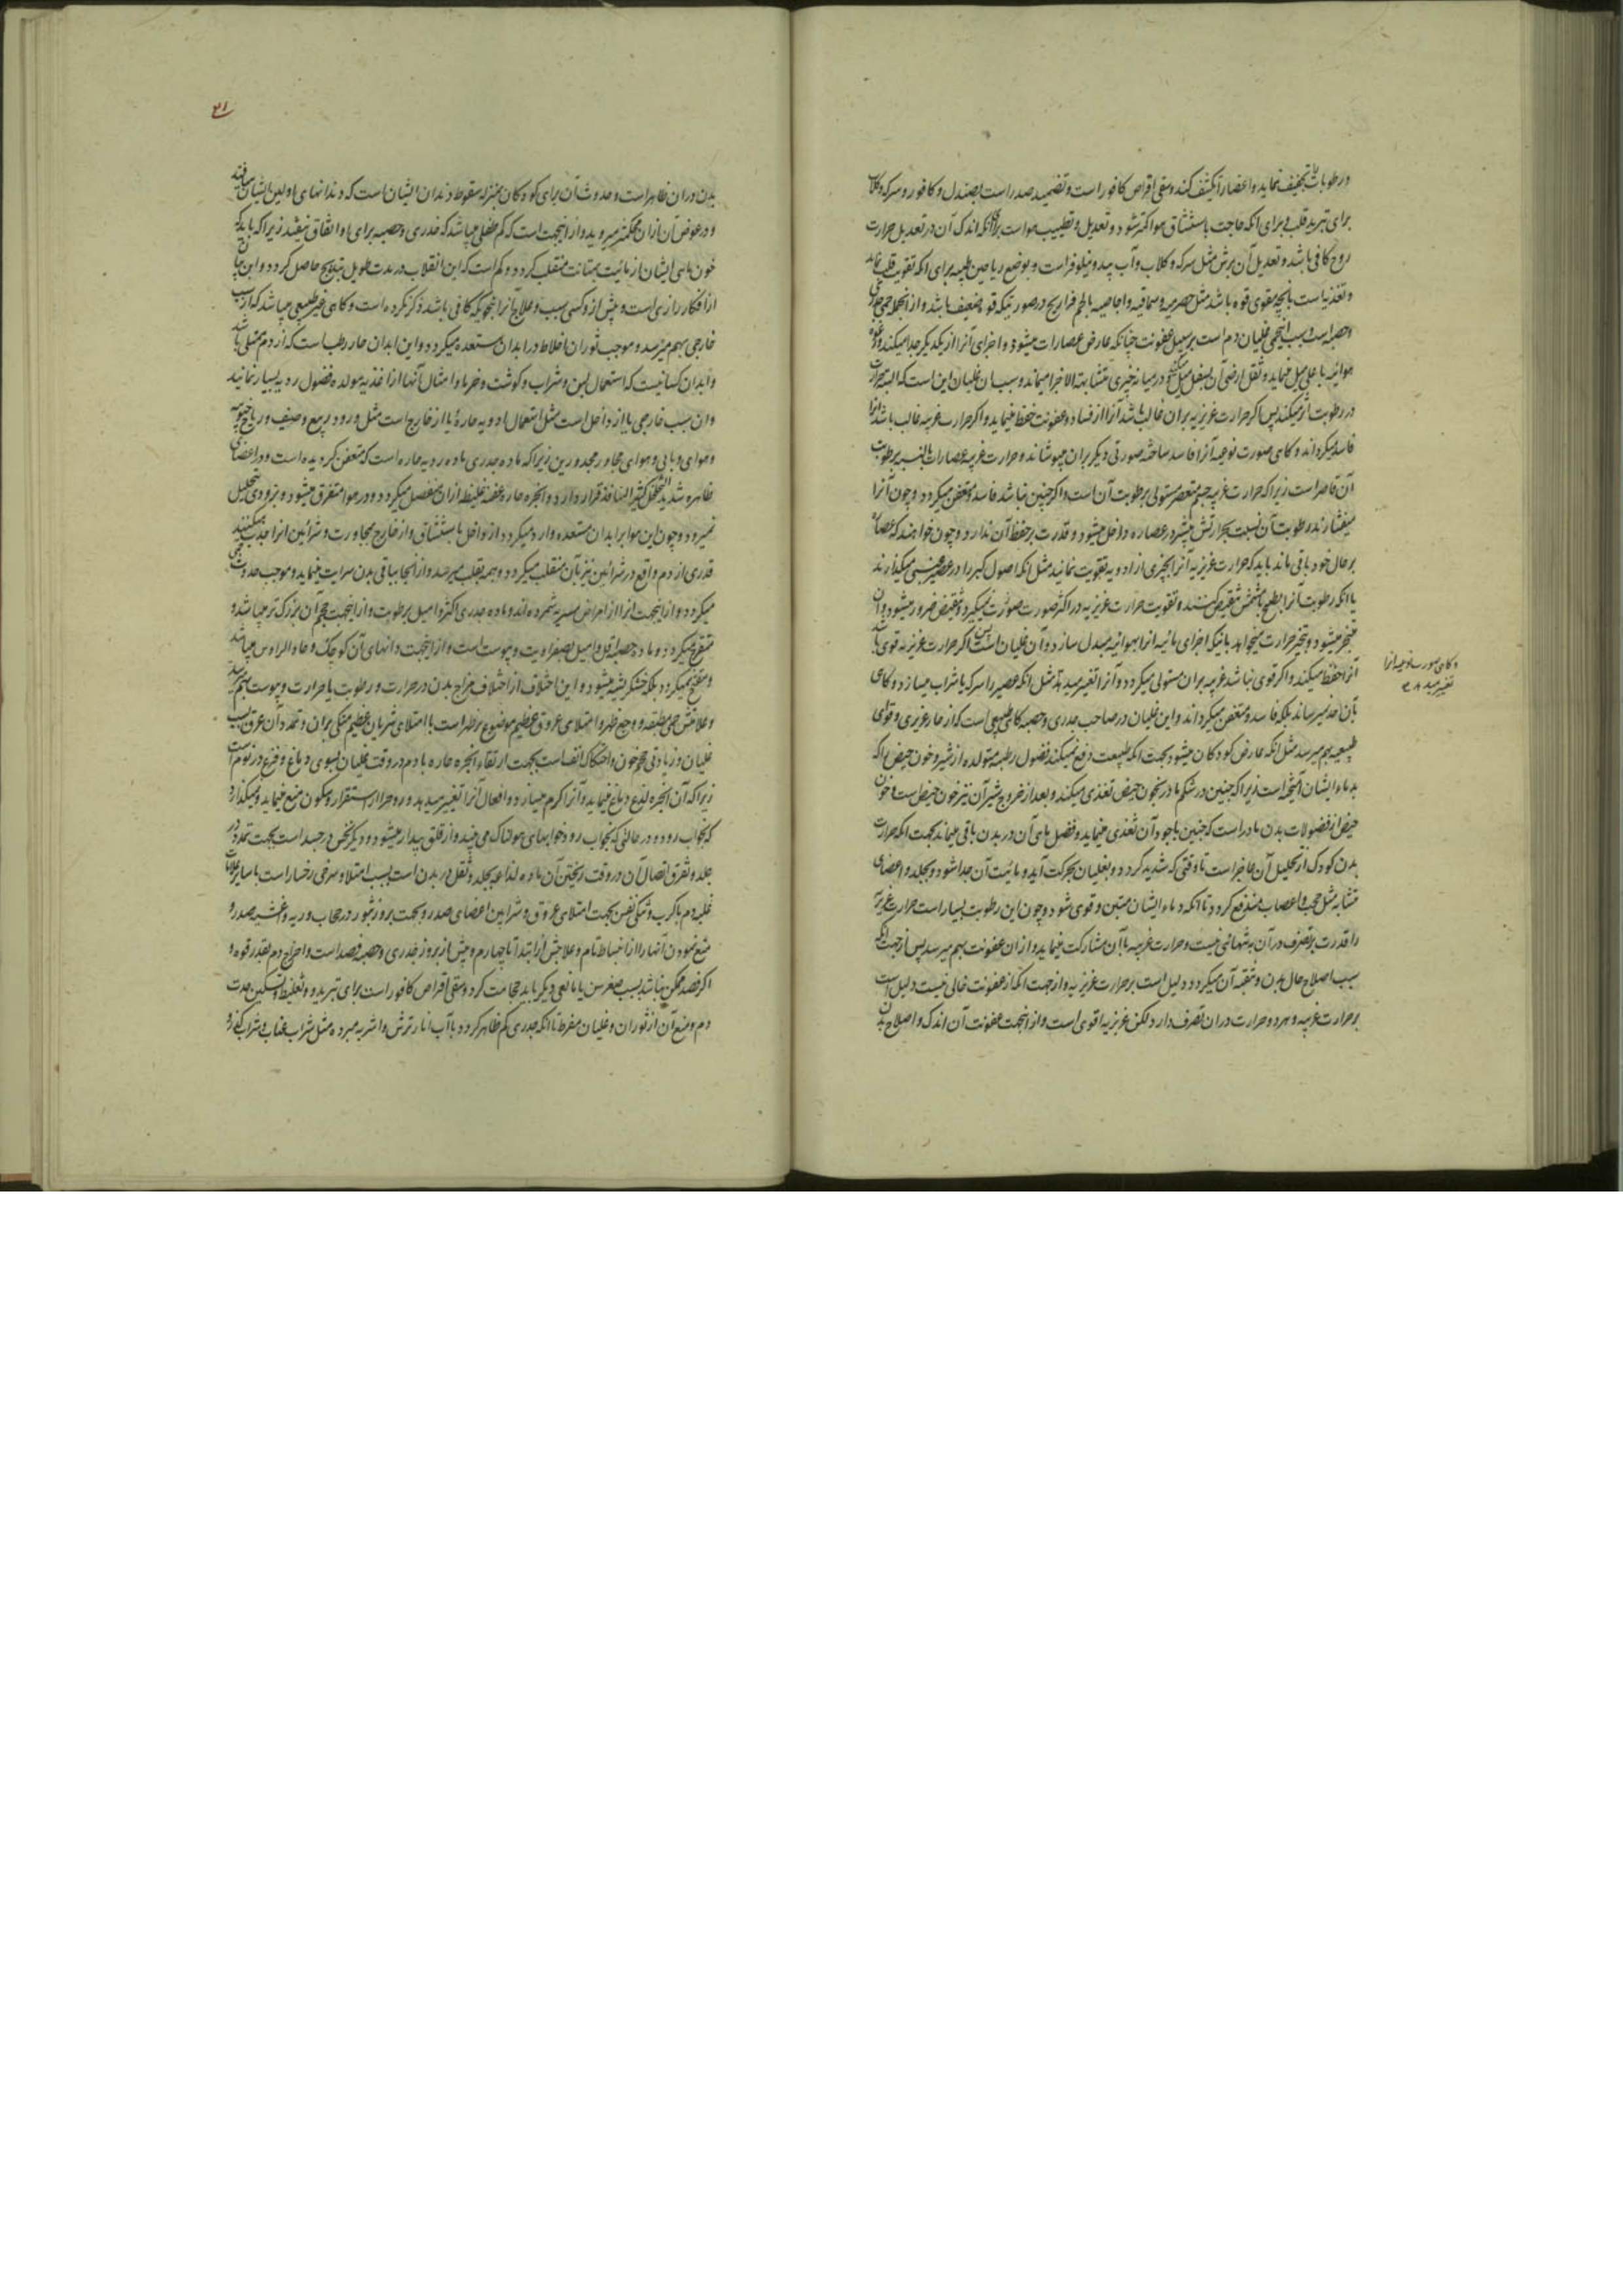 و رطوبات تجفیف نماید و اعضا را تکثیف کند و سقی اقراص کافور است و تضمید صدر است بصندل و کافور و سرکه و کلاب
برای تبرید قلب و برای انکه حاجت باستنشاق هوا کمتر شود و تعدیل و تطییب هوا است برای انکه اندک آن در تعدیل حرارت
روح کافی باشد و تعدیل آن برش مثل سرکه و کلاب و آب بید و نیلوفر است و بوضع ریاحین طیبه برای انکه تقویت قلب نماید
و تغذیه است بانچه مقوی قوه باشد مثل حصرمیه و سماقیه و اجاصیه با لحم فراریج در صورتیکه قوه ضعیف باشد و از انجمله حمی جدری
و حصبه است و سبب این حمی غلیان دم است بر سبیل عفونت چنانکه عارض عصارات میشود و اجزای آنرا از یکدیکر جدا میکند و رغوه
هوائیه باعلی میل مینماید و ثقل ارضی آن بسفل میل میکند و در میانه چیزی متشابه الاجزا میماند و سبب آن غلیان این است که البته حرارت
در رطوبت اثر میکند پس اکر حرارت غریزیه بر ان غالب باشد آنرا از فساد و عفونت حفظ مینماید و اکر حرارت غریبه غالب باشد انرا
فاسد میکرداند و کاهی صورت نوعیه آنرا فاسد ساخته صورتی دیکر بران میپوشاند و حرارت غریبه عصارات بالنسبه برطوبت
آن قاصر است زیرا که حرارت غریبه جسم معتصر مستولی بر رطوبت آن است و اکر چنین نباشد فاسد و متعفن میکردد و چون آنرا
میفشارند رطوبت آن نسبت بحرارتش بیشتر در عصاره داخل میشود و قدرت بر حفظ آن ندارد و چون خواهند که عصاره
بر حال خود باقی ماند باید که حرارت غریزیه آنرا بچیزی از ادویه تقویت نمایند مثل انکه اصول کبر را در عصیر عنبی میکذارند
یا انکه رطوبت آنرا بطبخ یا تشمیس تنقیص کنند و تقویت حرارت غریزیه در اکثر صورت صورت نمیکیرد و تنقیض ضرور میشود و ان
متبخر میشود و تبخیر حرارت میخواهد بانیکه اجزای مائیه انرا بهوائیه مبدل سازد و آن غلیان است پس اکر حرارت غریزیه قوی باشد
و کاهی صورت نوعیه انرا
تغییر میدهد
آنرا حفظ میکند و اکر قوی نباشد غریبه بران مستولی میکردد و آنرا تغییر میدهد مثل انکه عصیر را سرکه یا شراب میسازد و کاهی
بآن حد نمیرساند بلکه فاسد و متعفن میکرداند و این غلیان در صاحب جدری و حصبه کاهی طبیعی است که از حار غریزی و قوای
طبیعیه بهم میرسد مثل انکه عارض کودکان میشود بجهت انکه طبیعت دفع نمیکند فضول رطبه متولده از شیر و خون حیض را که
بدماء ایشان آمیخته است زیرا که جنین در شکم مادر بخون حیض تغذی میکند و بعد از خروج شیر آن نیز خون حیض است و خون
حیض از فضولات بدن مادر است که جنین باجود آن تغذی مینماید و فضل باقی آن در بدن باقی میماند بجهت انکه حرارت
بدن کودک از تحلیل آن عاجز است تا وقتی که شدید کردد و بغلیان بحرکت آید و مائیت آن جدا شود و بجلد و اعضای
متشابه مثل حجب و اعصاب مندفع کردد تا انکه دماء ایشان متین و قوی شود و چون این رطوبت بسیار است حرارت غریزیه
را قدرت بر تصرف در آن بتنهائی نیست و حرارت غریبه با آن مشارکت مینماید و از ان عفونت بهم میرسد پس از جهت انکه
سبب اصلاح حال بدن و تنقیه آن میکردد دلیل است بر حرارت غریزیه و از جهت انکه از عفونت خالی نیست دلیل است
بر حرارت غریبه و هر دو حرارت در ان تصرف دارد لکن غریزیه اقوی است و از انجهت عفونت آن اندک و اصلاح بدن
۳۱
بدن در ان ظاهر است و حدوث آن برای کودکان بمنزله سقوط دندان ایشان است که دندانهای اولین ایشان ساقط شده
و در عوض آن ازان محکمتر میروید و از اینجهت است که کم طفلی میباشد که جدری و حصبه برای او اتفاق نیفتد زیرا که باید که
خون های ایشان از مائیت بمتانت منقلب کردد و کم است که این انقلاب در مدت طویل بتدریج حاصل کردد و این جا
از افکار رازی است و پیش از او کسی سبب و علاج آنرا بنحویکه کافی باشد ذکر نکرده است و کاهی غیر طبیعی میباشد که از سبب
خارجی بهم میرسد و موجب ثوران اخلاط در ابدان مستعده میکردد و این ابدان حار رطب است که از دم ممتلی باشد
و ابدان کسانیست که استعمال لبن و شراب و کوشت و خرما و امثال آنها از اغذیه مولده فضول ردیه بسیار نمایند
و ان سبب خارجی یا از داخل است مثل استعمال ادویه حاره یا از خارج است مثل ورود ربیع و صیف و ریاح جنوبیه
و هوای وبایی و هوای مجاور مجدورین زیرا که ماده جدری ماده ردیه حاره است که متعفن کردیده است و در اعضای
ظاهره شدید التخلخل کثیر المنافذ قرار دارد و ابخره حاره عفنه غلیظ ازان منفصل میکردد و در هوا متفرق میشود و بزودی تحلیل
نمیرود و چون این هوا بر ابدان مستعده وارد میکردد از داخل باستنشاق و از خارج بمجاورت و شرائین انرا جذب میکنند
قدری از دم واقع در شرائین نیز بآن منقلب میکردد و همه بقلب میرسد و از انجا بباقی بدن سرایت مینماید و موجب حدوث حمی
میکردد و از اینجهت انرا از امراض مسریه شمرده اند و ماده جدری اکثر و امیل برطوبت و از اینجهت حجم آن بزرکتر میباشد و
متقیح میکردد و ماده حصبه اقل و امیل بصفراویت و یبوست است و از اینجهت دانهای آن کوچک و حاد الراس میباشد
و متقیح نمیکردد بلکه خشکریشه میشود و این اختلاف از اختلاف مزاج بدن در حرارت و رطوبت یا حرارت و یبوست بهم میرسد
و علامتش حمی مطبقه و وجع ظهر و امتلای عروق عظیم موضوع بر ظهر است با امتلای شریان عظیم متکی بران و تمدد آن عرق بسبب
غلیان و زیادتی حجم خون و احتکاک انف است بجهت ارتقاء ابخره حاره با دم در وقت غلیان بسوی دماغ و فزع در نوم است
زیرا که آن ابخره لذع دماغ مینماید و آنرا کرم میسازد و افعال آنرا تغییر میدهد و روح را از استقرار و سکون منع مینماید و نمیکذارد
که بخواب رود و در حالتی که بخواب رود خوابهای هولناک می بیند و از قلق بیدار میشود و دیکر نخس در جسد است بجهت تمدد در
جلد و تفرق اتصال آن در وقت ریختن آن ماده لذاعه بجلد و ثقل در بدن است بسبب امتلا و سرخی رخسار است با سایر علامات
غلبه دم با کرب و تنکی نفس بجهت امتلای عروق و شرایین اعضای صدر و بجهت بروز بثور در حجاب و ریه و اغشیه صدر و
منع نمودن آنها را از انبساط تام و علاجش از ابتدا تا چهارم و پیش از بروز جدری و حصبه فصد است و اخراج دم بقدر قوه و
اکر فصد ممکن نباشد بسبب صغر سن یا مانعی دیکر باید حجامت کرد و سقی اقراص کافور است برای تبرید و تغلیظ و تسکین حدت
دم و منع آن از ثوران و غلیان مفرط تا انکه جدری کم ظاهر کردد با آب انار ترش و اشربه مبرده مثل شراب عناب و شراب کدر